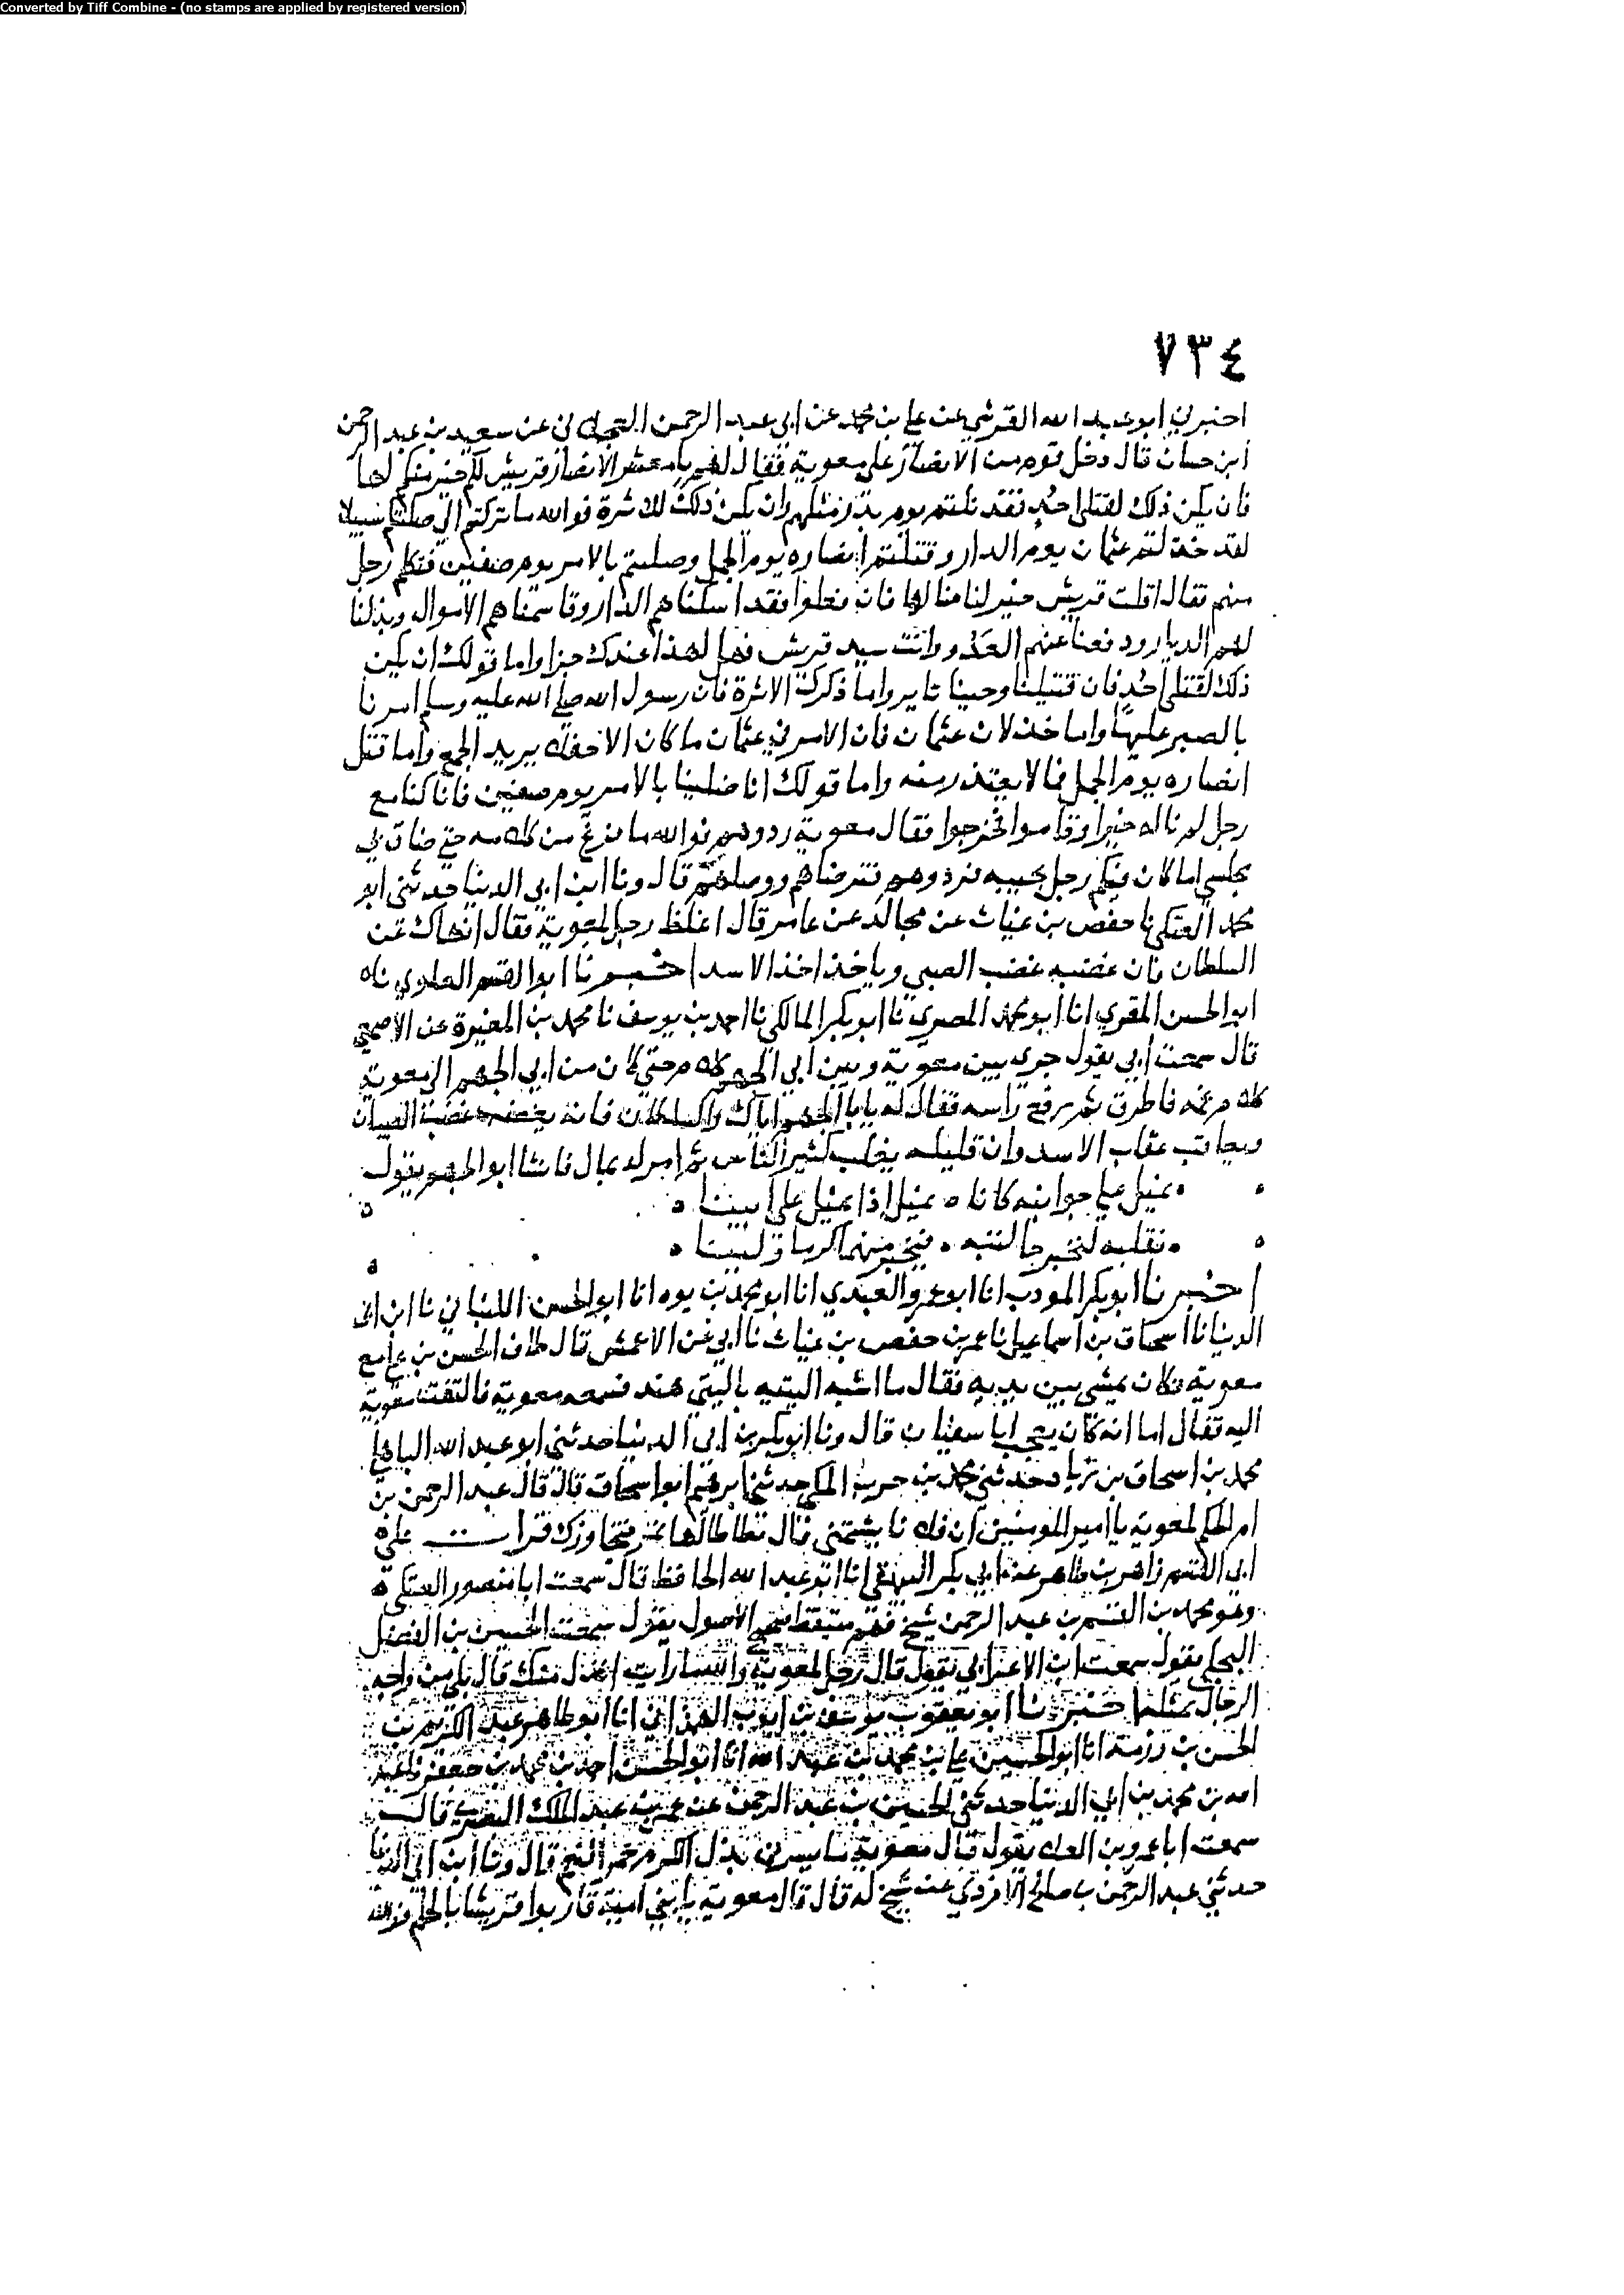 Converted by Tiff Combine - (no stamps are applied by registered version)
٧٣٤
اخبرني ابو عبد الله القرشي عن علي بن محمد عن ابي عبد الرحمن العجلاني عن سعيد بن عبد الرحمن
ابن حسان قال دخل قوم من الانصار على معوية فقال لهم يا معشر الانصار قريش لكم خير منكم لها
فان يكن ذلك لقتلى احد فقد نلتم يوم بدر مثلهم وان يكن ذلك للاثرة فوالله ما تركتم الى صلتكم سبيلا
لقد خذلتم عثمان يوم الدار وقتلتم انصاره يوم الجمل وصليتم بالامر يوم صفين فتكلم رجل
منهم فقال اقلت قريش خير لنا منا لها فان فعلوا فقد اسكناهم الدار وقاسمناهم الاموال وبذلنا
لهم الديار ودفعنا عنهم العدو وانت سيد قريش فهل لهذا عندك جزا واما قولك ان يكن
ذلك لقتلى احد فان قتيلنا وحينا ثاير واما ذكرك الاثرة فان رسول الله صلى الله عليه وسلم امرنا
بالصبر عليها واما خذلان عثمان فان الامر في عثمان ما كان الاجفله يريد الجمع واما قتل
انصاره يوم الجمل فما لا يعتذر منه واما قولك انا صلينا بالامر يوم صفين فانا كنا مع
رجل لم ناله خيرا وقاموا فخرجوا فقال معوية ردوهم فوالله ما فرغ من كلامه حتى ضاق بي
مجلسي اما كان فيكم رجل يجيبه فردوهم فترضاهم ووصلهم قال ونا ابن ابي الدنيا حدثني ابو
محمد العتكي نا حفص بن غياث عن مجالد عن عامر قال اغلظ رجل لمعوية فقال انهاك عن
السلطان فان غضبه غضب الصبي وياخذ اخذ الاسد اخبرنا ابو القسم العلوي نا
ابو الحسن المقري انا ابو محمد المصري نا ابو بكر المالكي نا احمد بن يوسف نا محمد بن المغيرة عن الاصمعي
قال سمعت ابي يقول جرى بين معوية وبين ابي الجهم كلام حتى كان من ابي الجهم الى معوية
كلام غمه فاطرق ثم رفع راسه فقال له يا با الجهم اياك والسلطان فانه يغضب غضب الصبيان
ويعاقب عقاب الاسد وان قليله يغلب كثير الناس ثم امر له بمال فانشا ابو الجهم يقول
نميل على جوانبه كانا ه نميل اذا نميل على ابينا ه
نقلبه لنخبر حالتيه ه فنخبر منهما كرما ولينا ه
اخبرنا ابو بكر المودب انا ابو عمرو العبدي انا ابو محمد بن يوه انا ابو الحسن اللنباني نا ابن ابي
الدنيا نا اسحاق بن اسماعيل نا عمر بن حفص بن غياث نا ابي عن الاعمش قال طاف الحسن بن علي مع
معوية فكان يمشي بين يديه فقال ما اشبه اليتيه باليتي هند فسمعه معوية فالتفت معوية
اليه فقال اما انه كان يعجب ابا سفيان قال ونا ابو بكر بن ابي الدنيا حدثني ابو عبد الله الباهلي
محمد بن اسحاق بن زياد حدثني محمد بن حرب المكي حدثني ابرهيم ابو اسحاق قال قال عبد الرحمن بن
ام الحكم لمعوية يا امير المومنين ان فلانا يشتمني قال تطاطا لها تمر فتجاوزك قرات على
ابي القسم زاهر بن طاهر عن ابي بكر البيهقي انا ابو عبد الله الحافظ قال سمعت ابا منصور العتكي ه
وهو محمد بن القسم بن عبد الرحمن شيخ فهم متيقظ صحيح الاصول يقول سمعت الحسين بن الفضل
البجلي يقول سمعت ابن الاعرابي يقول قال رجل لمعوية والله ما رايت انذل منك قال بلى من واجه
الرجال بمثلها اخبرنا ابو يعقوب يوسف بن ايوب الهمذاني انا ابو طاهر عبد الكريم بن
الحسن بن رزمه انا ابو الحسين علي بن محمد بن عبد الله انا ابو الحسن احمد بن محمد بن جعفر نا عبد
الله بن محمد بن ابي الدنيا حدثني الحسين بن عبد الرحمن عن عمر بن عبد الملك البصري قال
سمعت ابا عمرو بن العلاء يقول قال معوية ما يسرني بذل الكرم حمر النعم قال ونا ابن ابي الدنيا
حدثني عبد الرحمن بن صالح الازدي عن شيخ له قال قال معوية يا بني امية قاربوا قريشا بالحلم فوالله